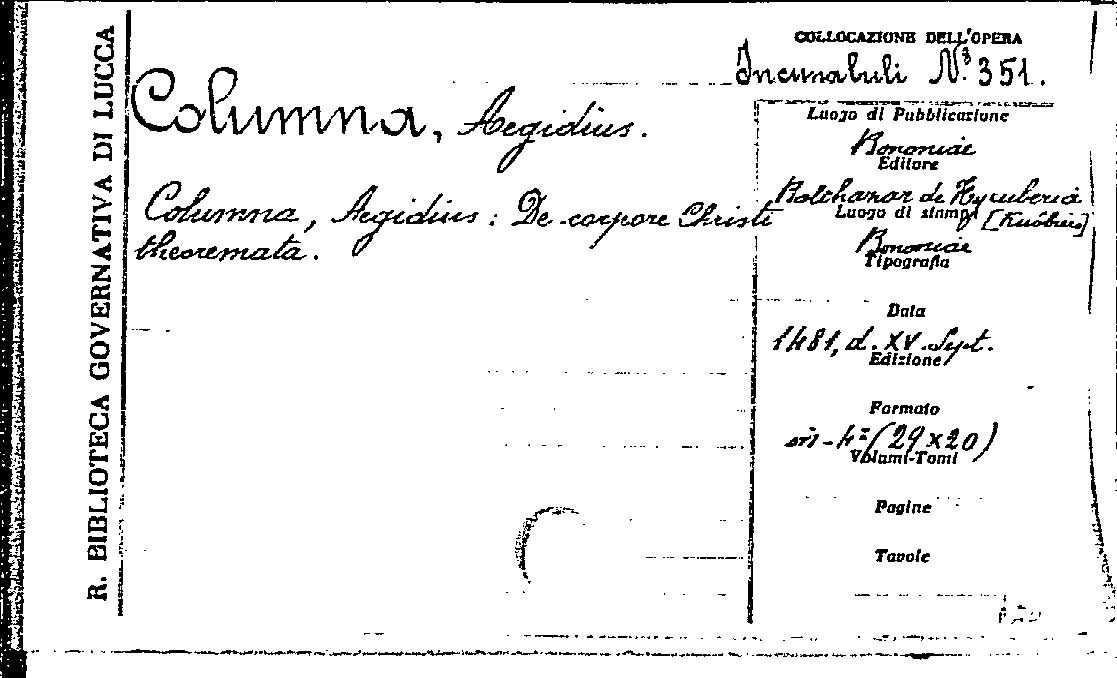 R. BIBLIOTECA GOVERNATIVA DI LUCCA
COLLOCAZIONE DELL'OPERA
Incunabuli N.° 351.
Columna, Aegidius.
Columna, Aegidius: De corpore Christi
theoremata.
Luogo di Pubblicazione
Bononiae
Editore
de
Luogo di stampa
Bononiae
Tipografia
Data
1481, d. XV. Sept.
Edizione
Formato
in-4° (29×20)
Volumi-Tomi
Pagine
Tavole